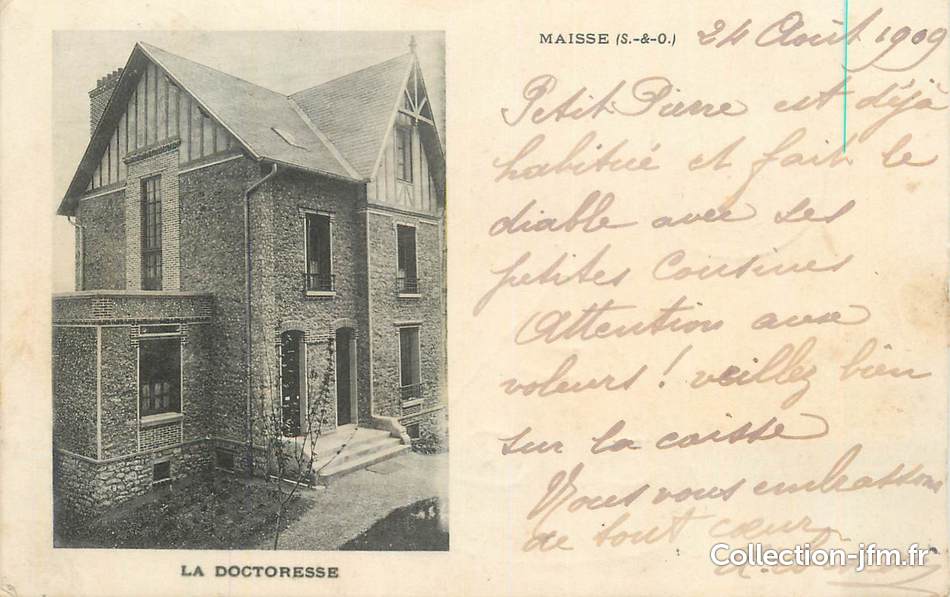 MAISSE (S.-&-O.) 24 Août 1909
Petit Pierre est déjà
habitué et fait le
diable avec ses
petites Cousines
Attention aux
voleurs ! veillez bien
sur la caisse
Nous vous embrassons
de tout cœur
LA DOCTORESSE
Collection-jfm.fr